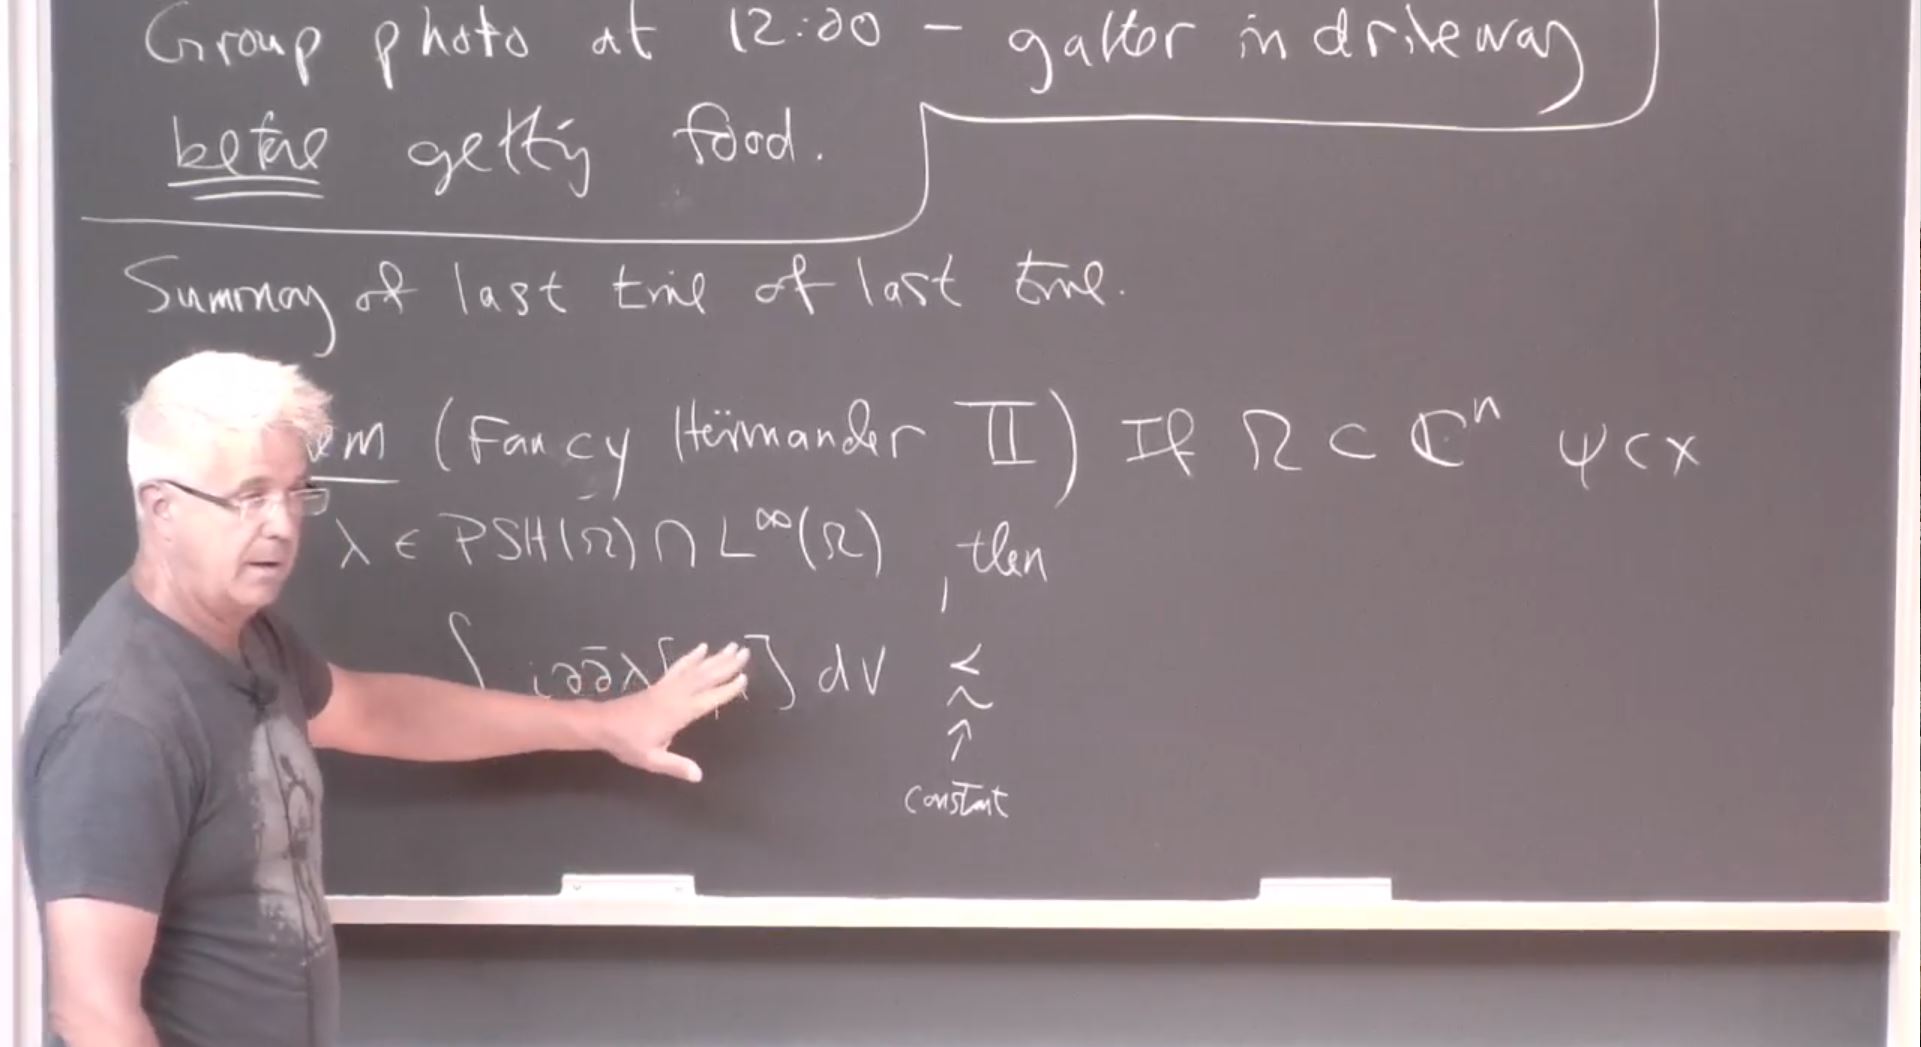 Group photo at 12:00 - gather in driveway
before getting food.
Summary of last time of last time.
em (Fancy Hörmander II) If Ω ⊂ ℂⁿ ψcx
λ ∈ PSH(Ω) ∩ L^∞(Ω), then
∫ i∂∂̄λ[ ] dV ≲
↑
constant